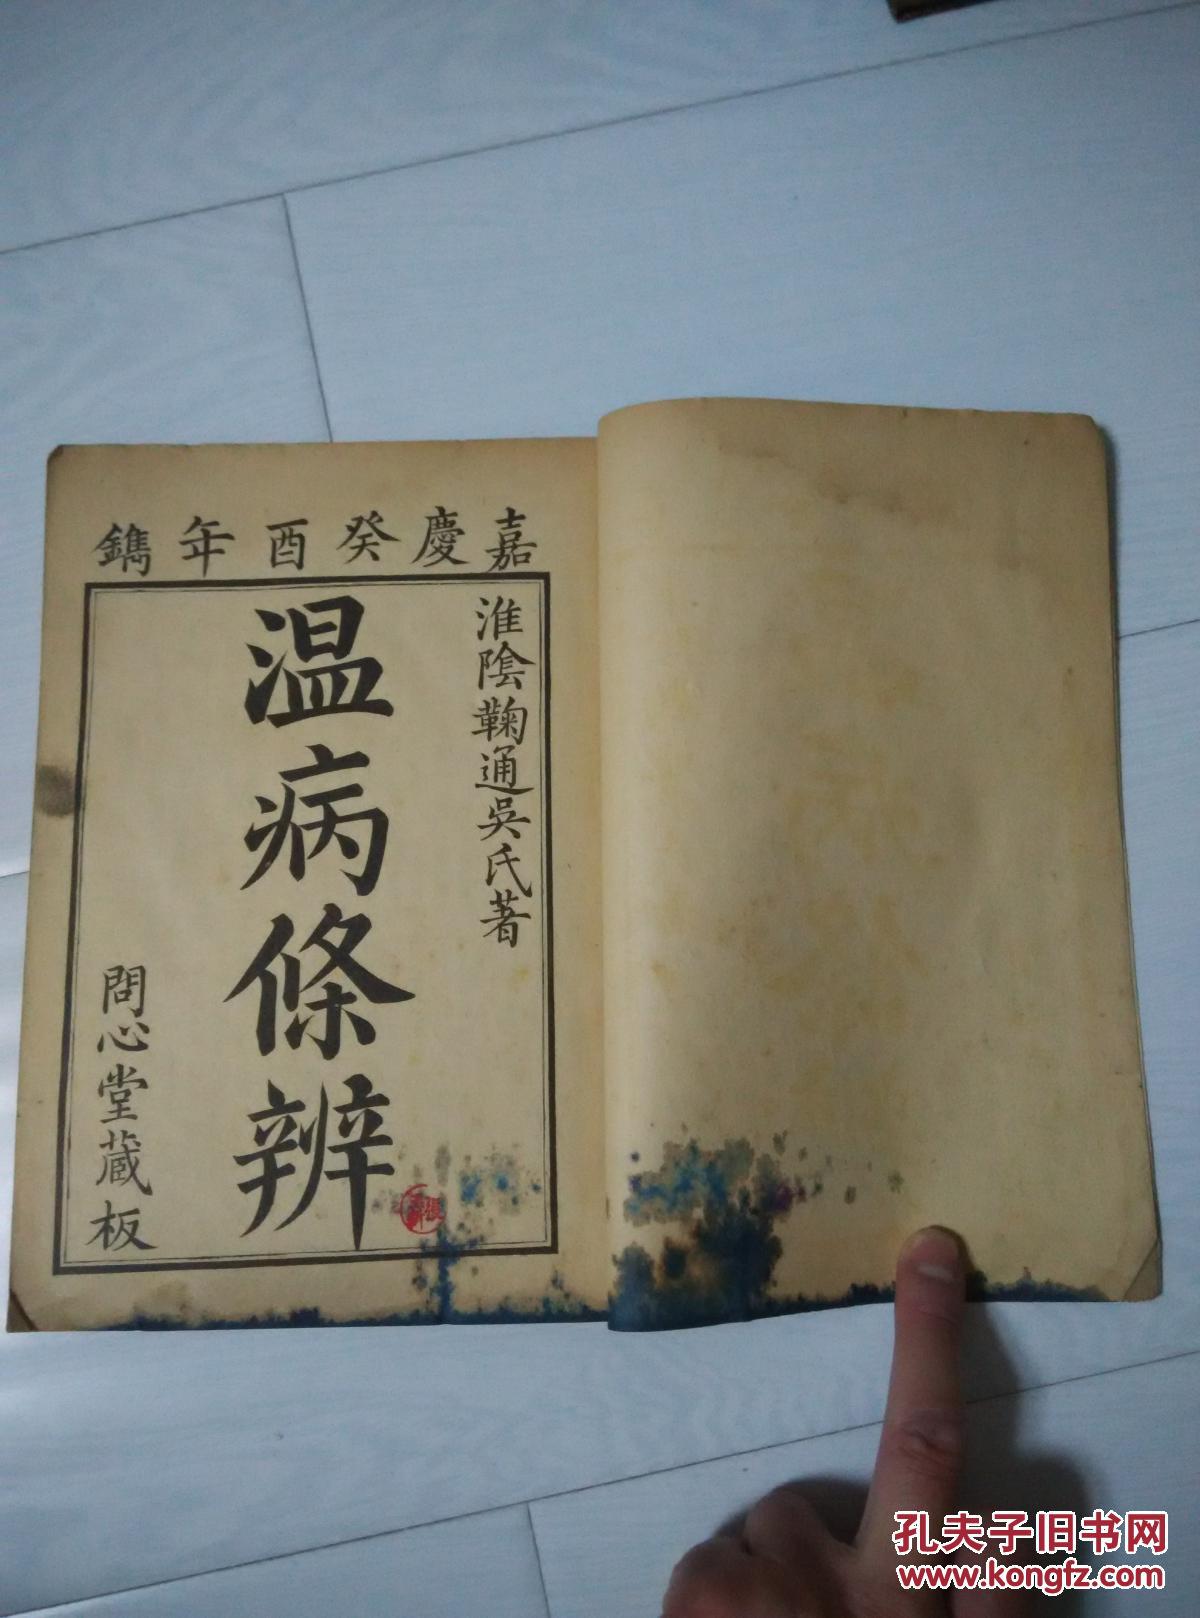 嘉慶癸酉年鐫
淮陰鞠通吳氏著
温病條辨
問心堂藏板
孔夫子旧书网
www.kongfz.com